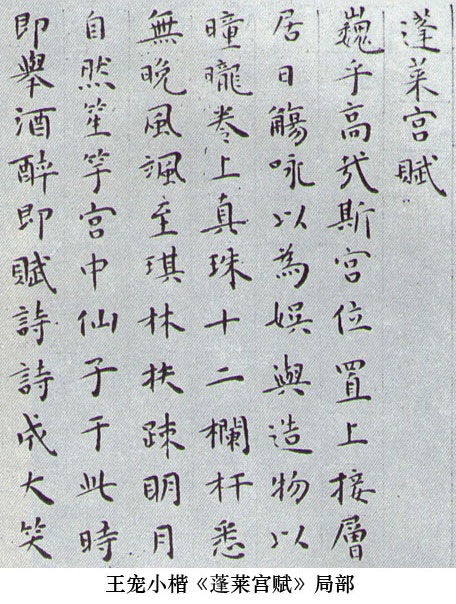 蓬莱宫賦
巍乎高哉斯宫位置上接層
居日觴咏以為娱與造物以
曈曨卷上真珠十二欄杆悉
無晚風颯至琪林扶踈明月
自然笙竽宫中仙子于此時
即舉酒醉即賦詩詩成大笑
王宠小楷《蓬莱宫赋》局部